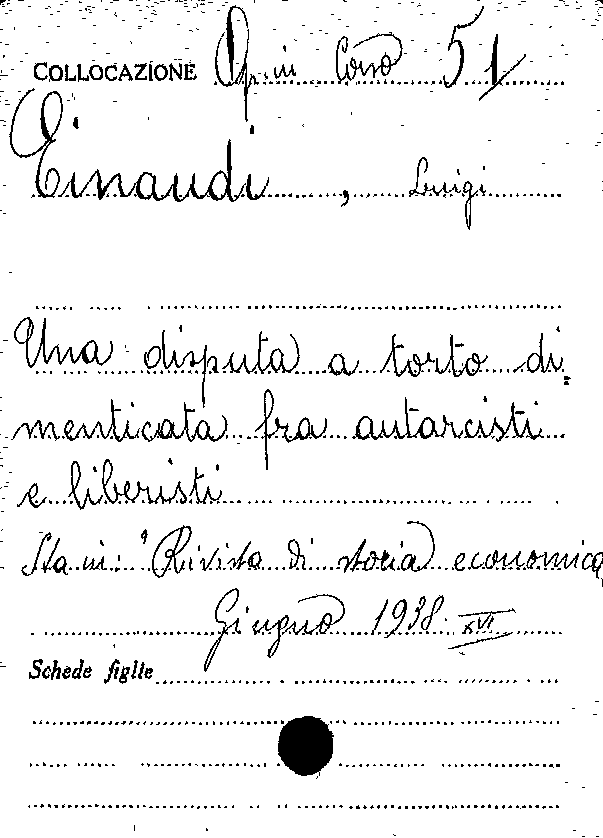 COLLOCAZIONE Op. in Corso 51
Einaudi, Luigi
Una disputa a torto di=
menticata fra autarcisti
e liberisti
Sta in: "Rivista di storia economica
Giugno 1938 XVI
Schede figlie